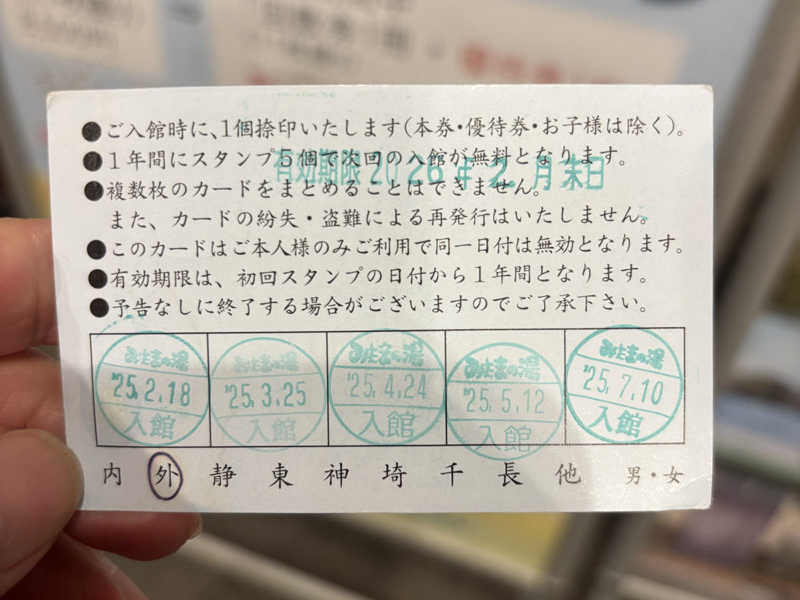 ●ご入館時に、1個捺印いたします(本券・優待券・お子様は除く)。
●1年間にスタンプ5個で次回の入館が無料となります。
有効期限2026年2月末日
●複数枚のカードをまとめることはできません。
また、カードの紛失・盗難による再発行はいたしません。
●このカードはご本人様のみご利用で同一日付は無効となります。
●有効期限は、初回スタンプの日付から1年間となります。
●予告なしに終了する場合がございますのでご了承下さい。
みたまの湯 みたまの湯 みたまの湯 みたまの湯 みたまの湯
'25.2.18 '25.3.25 '25.4.24 '25.5.12 '25.7.10
入館 入館 入館 入館 入館
内 外 静 東 神 埼 千 長 他 男・女